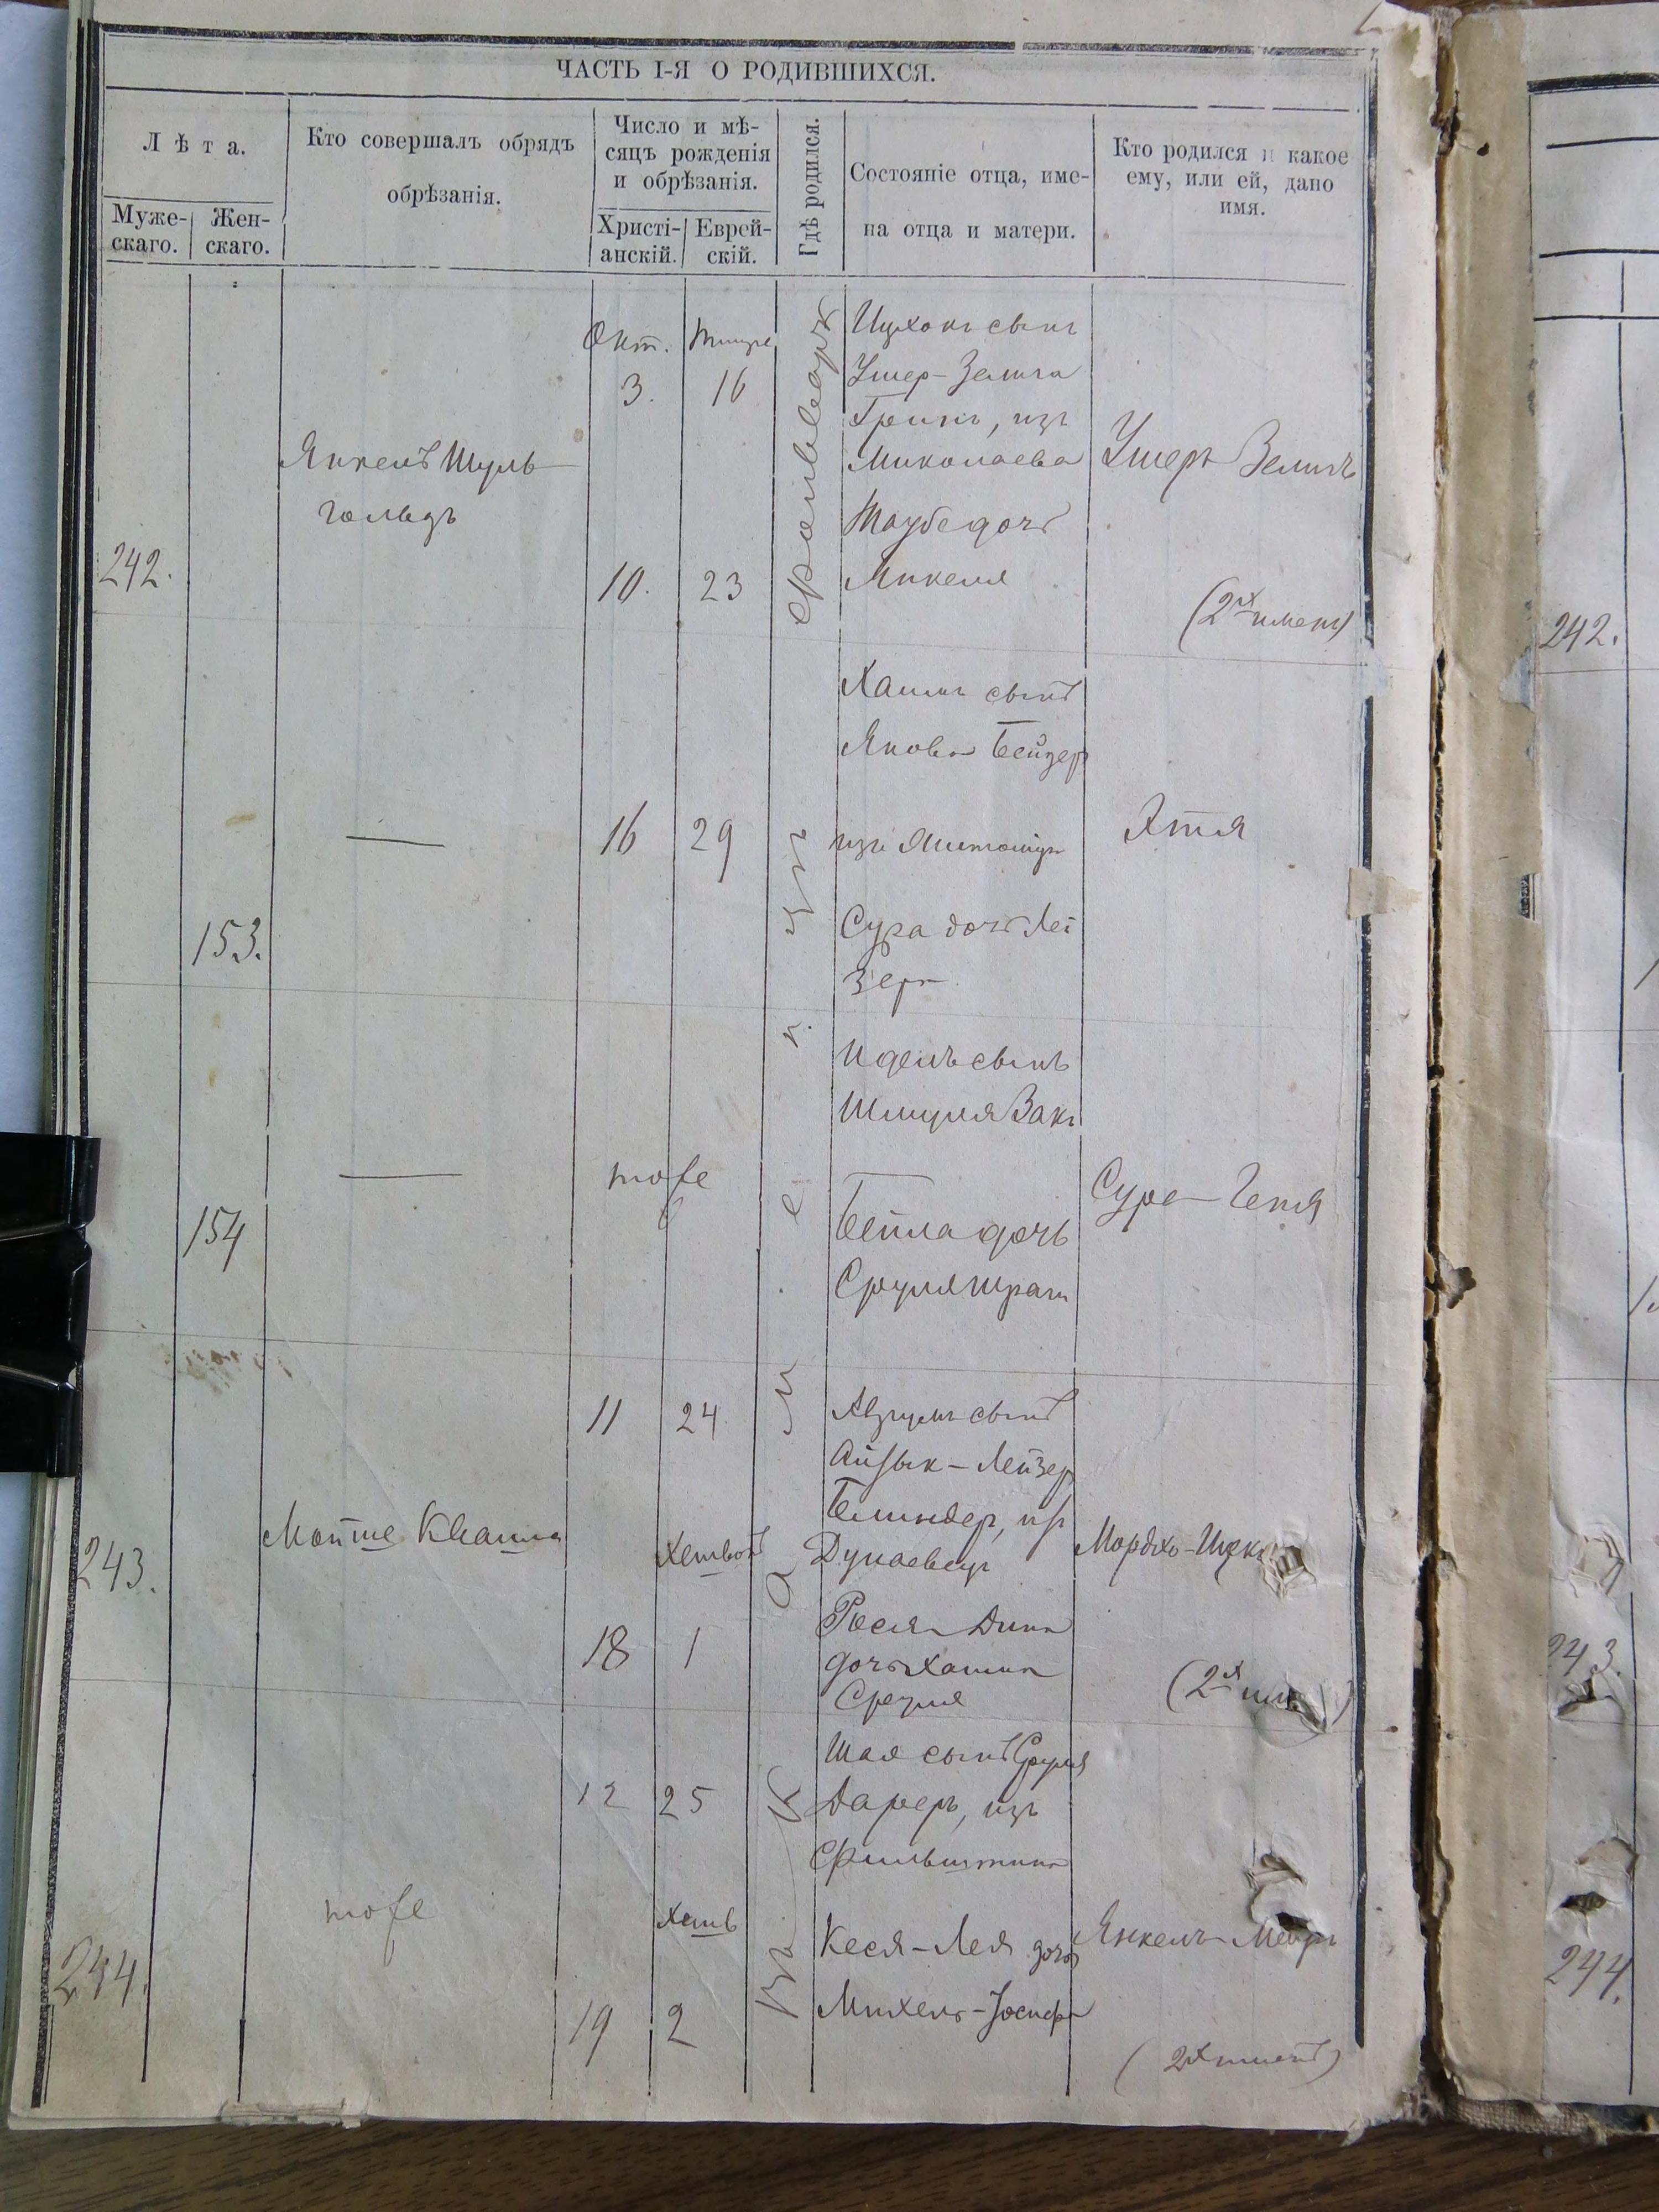 ЧАСТЬ I-Я О РОДИВШИХСЯ.
Лѣта.
Муже-
скаго.
Жен-
скаго.
Кто совершалъ обрядъ
обрѣзанія.
Число и мѣ-
сяцъ рожденія
и обрѣзанія.
Христі-
анскій.
Еврей-
скій.
Гдѣ родился.
Состояніе отца, име-
на отца и матери.
Кто родился и какое
ему, или ей, дано
имя.
242.
Янкель Шуль
гольдъ
Окт.
3.
10.
Тишре
16
23
Ицхокъ сынъ
Ушер-Зелига
Гринъ, изъ
Миколаева
Таубе дочь
Янкеля
Ушеръ Зелигъ
(2хъ именъ)
153.
—
16
29
Хаимъ сынъ
Якова Бейдер
изъ
Сура дочь Лей
зера
Этя
154
—
тоже
Идель сынъ
Шмуля Вакс
Бейла дочь
Сруля
Суре-Геня
243.
Мойше Кваша
11
18
24
Хешвонъ
1
Аврумъ сынъ
Айзык-Лейзер
из
Дунаевецъ
Рося-Дина
дочь Хаима
Сруля
Мордхо-Ицхк
(2хъ им
244.
тоже
12
19
25
Хешв
2
Шая сынъ Сруля
изъ
Фельштина
Кеся-Лея дочь
Михель-Іосифа
Янкель-Мейеръ
(2хъ именъ)
242.
243.
244.